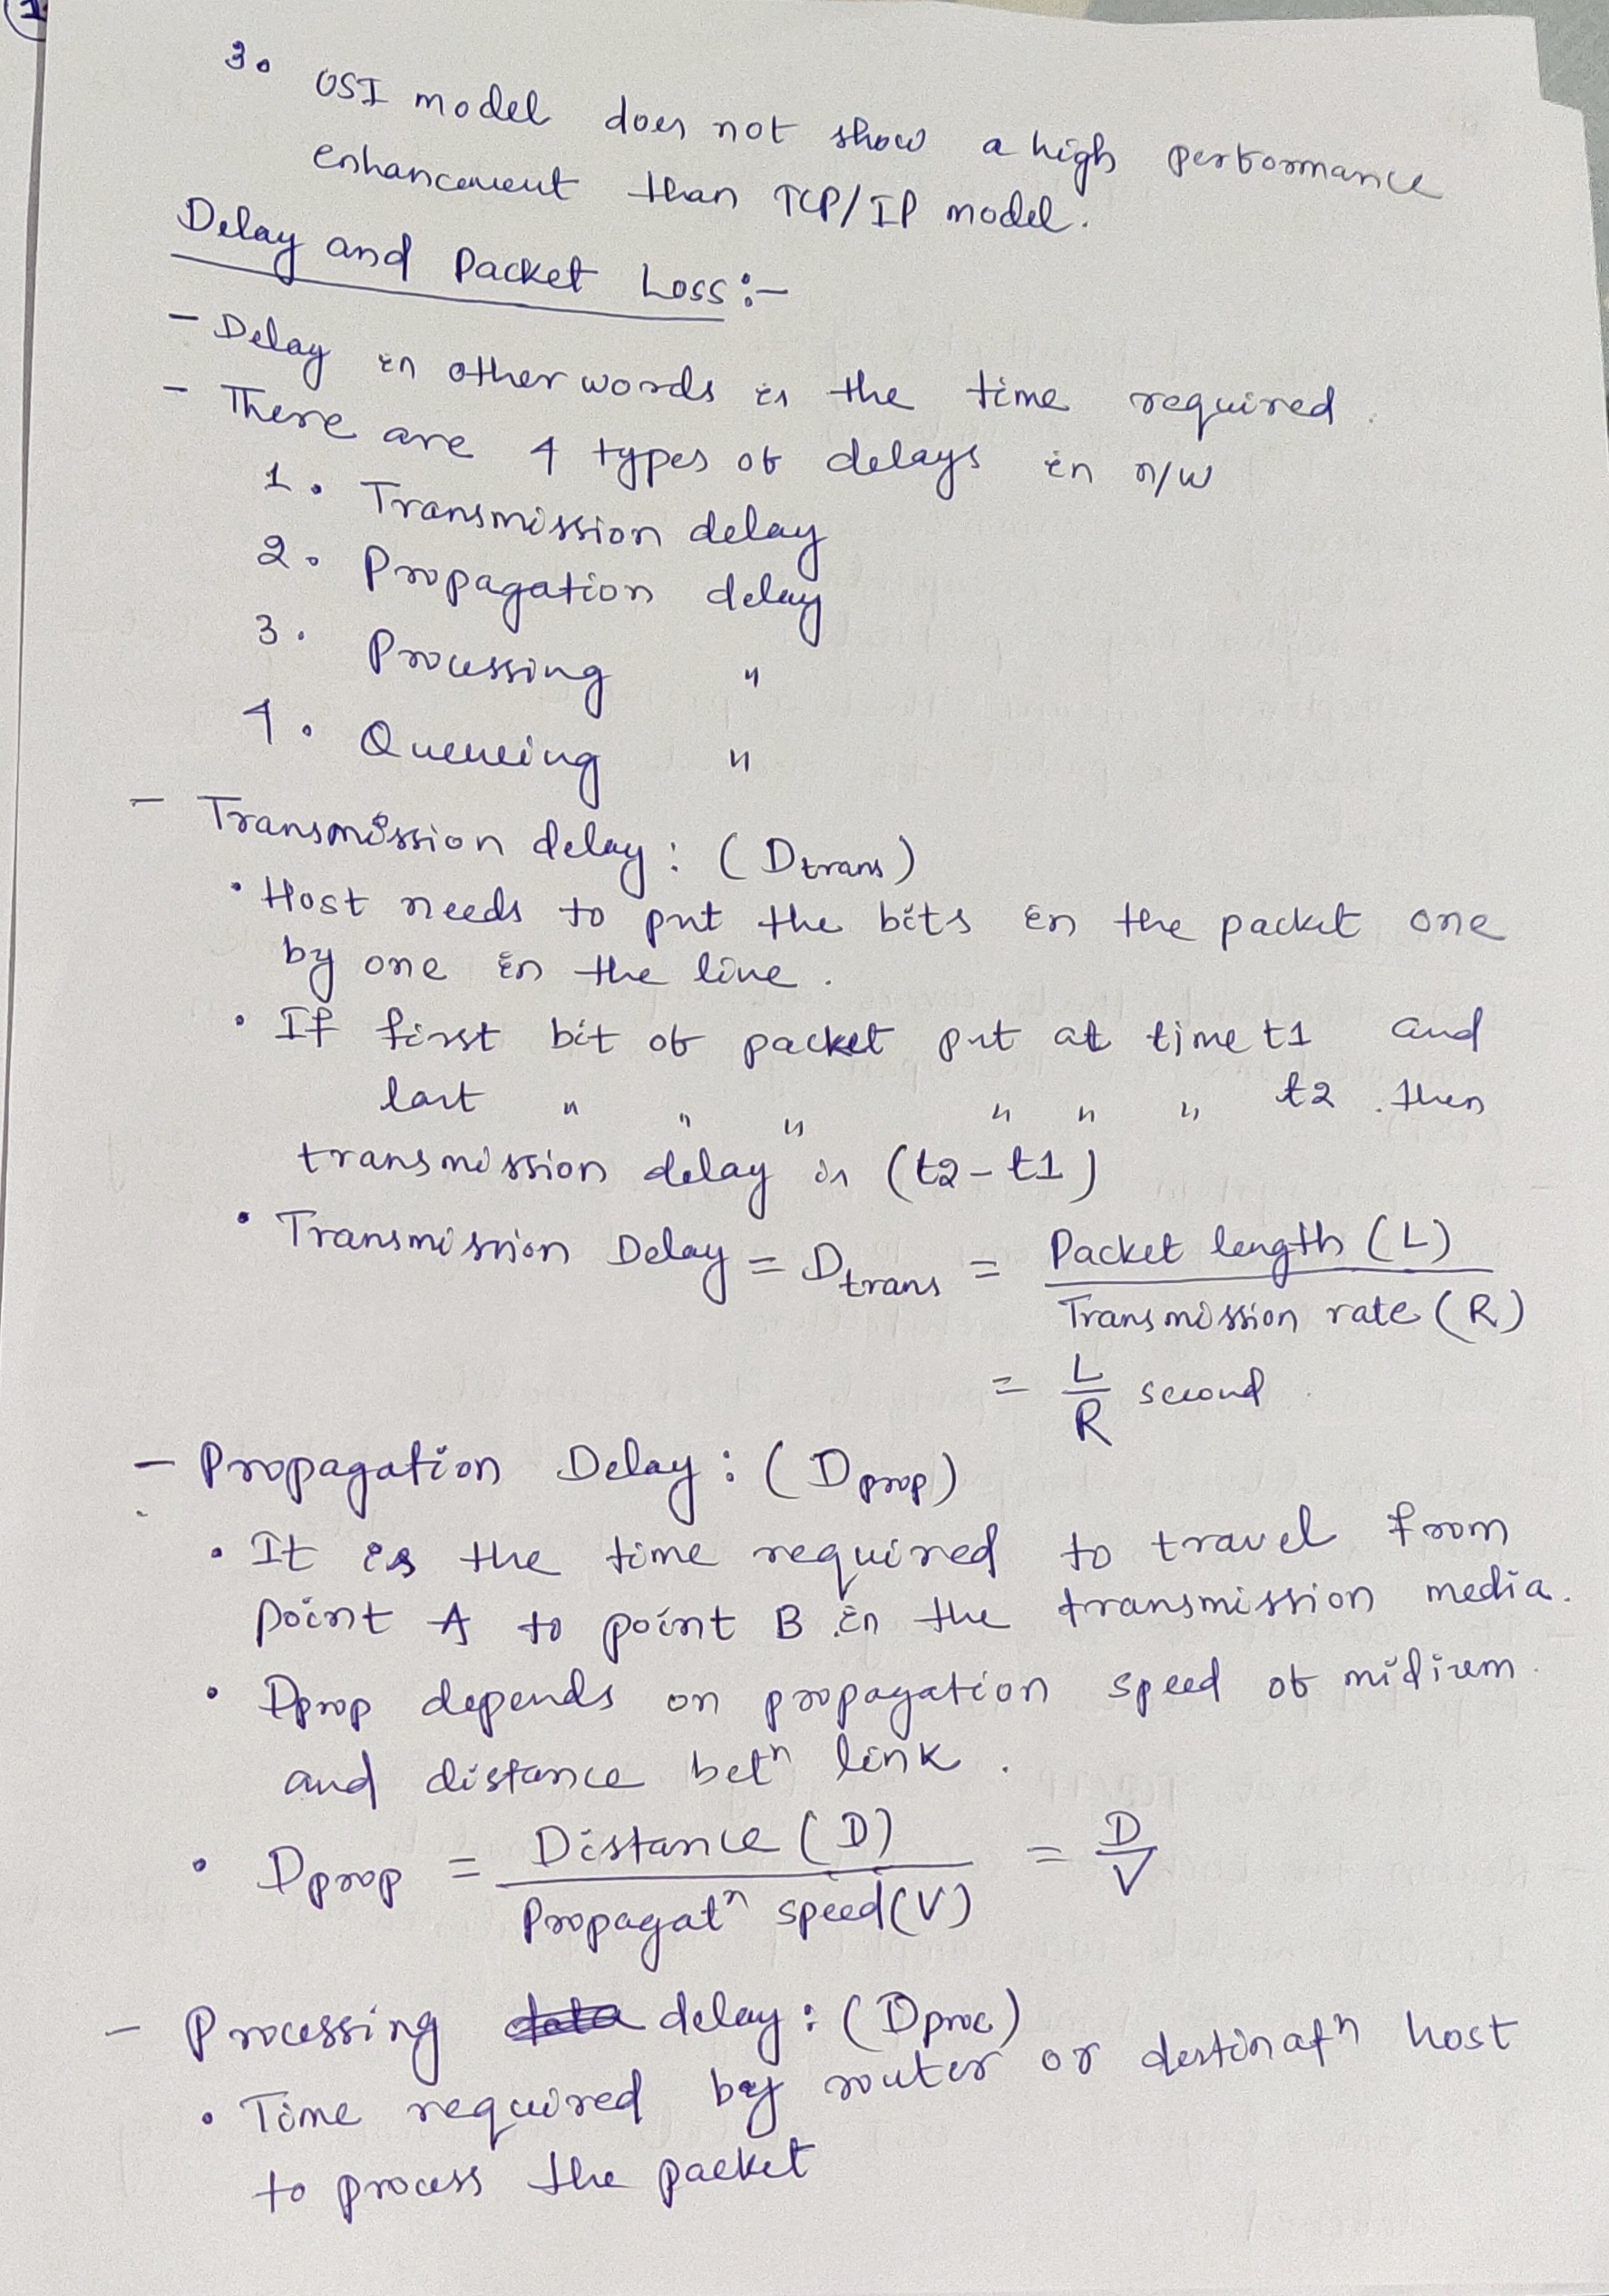 1
3. OSI model does not show a high performance
enhancement than TCP/IP model.
Delay and Packet Loss:-
- Delay in other words is the time required.
- There are 4 types of delays in n/w
1. Transmission delay
2. Propagation delay
3. Processing "
4. Queueing "
- Transmission delay: (Dtrans)
• Host needs to put the bits in the packet one
by one in the line.
• If first bit of packet put at time t1 and
last " " " " " " t2 . then
transmission delay is (t2-t1)
• Transmission Delay = Dtrans = Packet length (L)
Transmission rate (R)
= L/R second
- Propagation Delay: (Dprop)
• It is the time required to travel from
point A to point B in the transmission media.
• Dprop depends on propagation speed of midium
and distance betn link.
• Dprop = Distance (D) = D/V
Propagatn speed (V)
- Processing delay: (Dproc)
• Time required by router or destinatn host
to process the packet